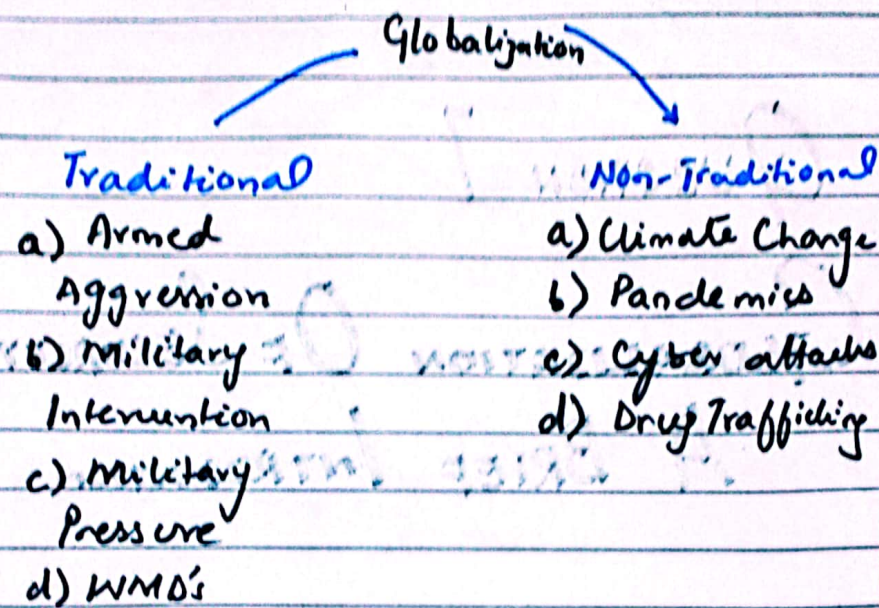 Globalization
Traditional
a) Armed
Aggression
b) Military
Intervention
c) Military
Pressure
d) WMD's
Non-Traditional
a) Climate Change
b) Pandemics
c) Cyber attacks
d) Drug Trafficking